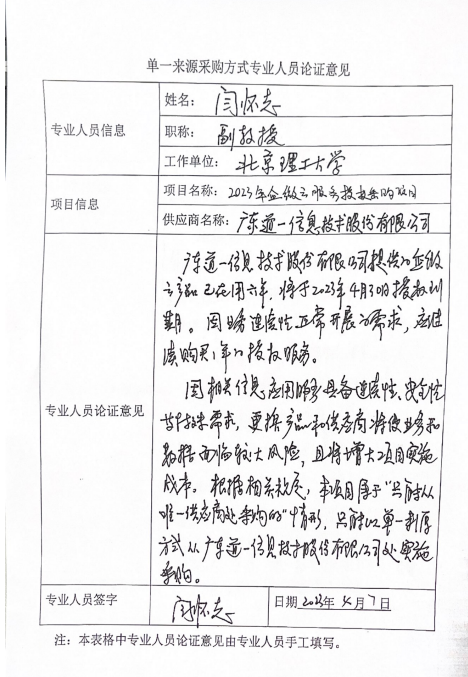 单一来源采购方式专业人员论证意见
专业人员信息
姓名： 闫怀志
职称： 副教授
工作单位： 北京理工大学
项目信息
项目名称： 2023年企微云服务授权采购项目
供应商名称： 广东道一信息技术股份有限公司
专业人员论证意见
广东道一信息技术股份有限公司提供的企微
云产品已在用六年，将于2023年4月30日授权到
期。因业务连续性正常开展的需求，应继
续购买1年的授权服务。
因相关信息应用服务具备连续性、安全性
等技术需求，更换产品和供应商将使业务和
数据面临较大风险，且将增大项目实施
成本。根据相关规定，本项目属于“只能从
唯一供应商处采购的”情形，只能以单一来源
方式从广东道一信息技术股份有限公司处实施
采购。
专业人员签字
闫怀志
日期 2023年4月7日
注：本表格中专业人员论证意见由专业人员手工填写。